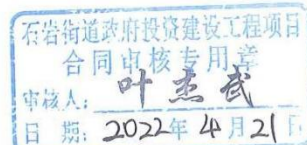 石岩街道政府投资建设工程项目
合同审核专用章
审核人：叶杰武
日期：2022年4月21日